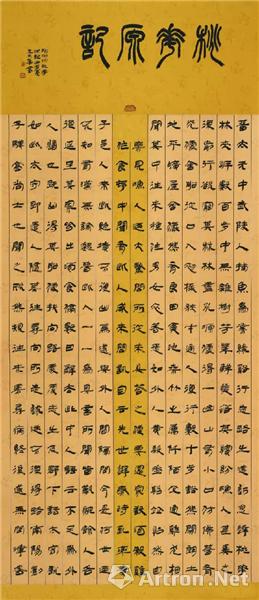 桃花源記
晉太元中武陵人捕魚為業緣溪行忘路之遠近忽逢桃花
林夾岸數百步中無雜樹芳草鮮美落英繽紛漁人甚異之
復前行欲窮其林林盡水源便得一山山有小口彷彿若有
光便舍船從口入初極狹才通人復行數十步豁然開朗土
地平曠屋舍儼然有良田美池桑竹之屬阡陌交通雞犬相
聞其中往來種作男女衣著悉如外人黃髮垂髫並怡然自
樂見漁人乃大驚問所從來具答之便要還家設酒殺雞
作食村中聞有此人咸來問訊自云先世避秦時亂率妻
子邑人來此絕境不復出焉遂與外人間隔問今是何世乃
不知有漢無論魏晉此人一一為具言所聞皆歎惋餘人各
復延至其家皆出酒食停數日辭去此中人語云不足為外
人道也既出得其船便扶向路處處誌之及郡下詣太守說
如此太守即遣人隨其往尋向所誌遂迷不復得路南陽劉
子驥高尚士也聞之欣然規往未果尋病終後遂無問津者
雅昌艺术网
Artron.Net